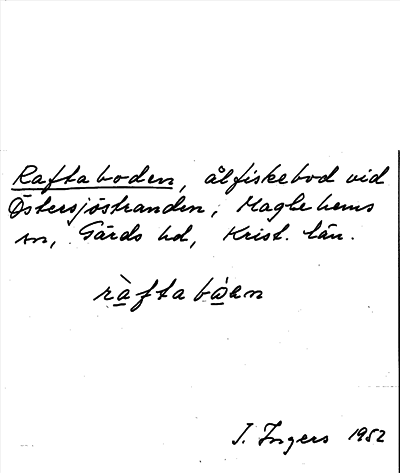 Raftaboden, ålfiskebod vid
Östersjöstranden, Maglehems
sn, Gärds hd, Krist. län.
ràftabò̤en
I. Ingers 1952